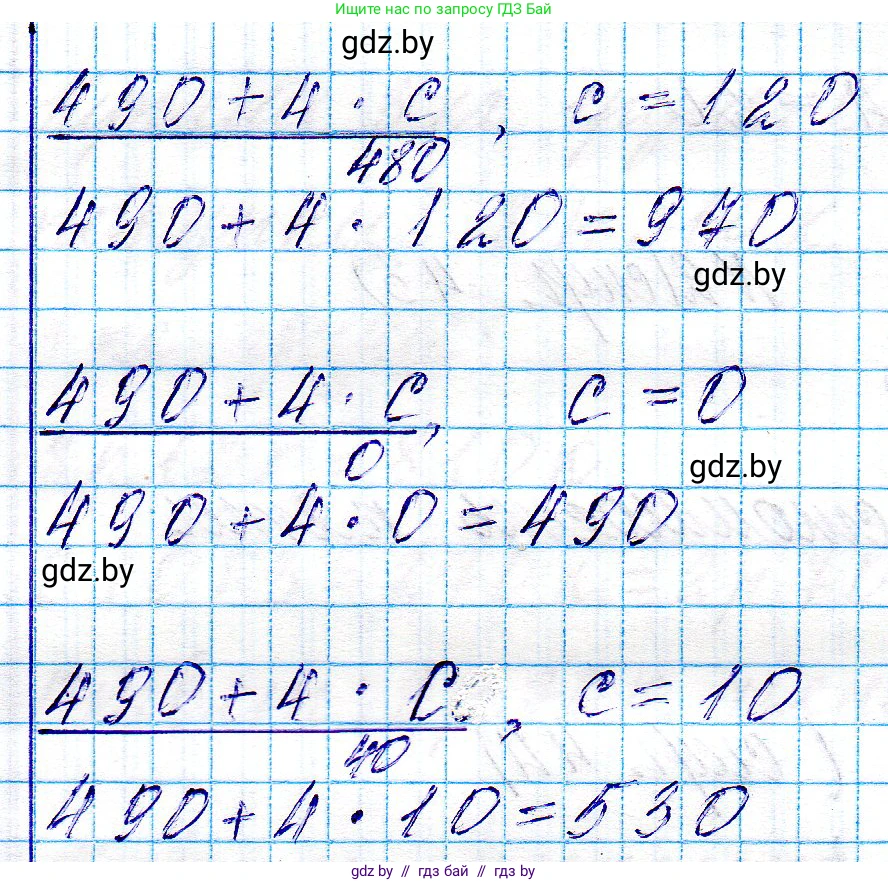 Ищите нас по запросу ГДЗ Бай
gdz.by
490 + 4 · c , c = 120
480
490 + 4 · 120 = 970
gdz.by
490 + 4 · c, c = 0
0
gdz.by
490 + 4 · 0 = 490
gdz.by
490 + 4 · c , c = 10
40
490 + 4 · 10 = 530
gdz.by // гдз бай // гдз by